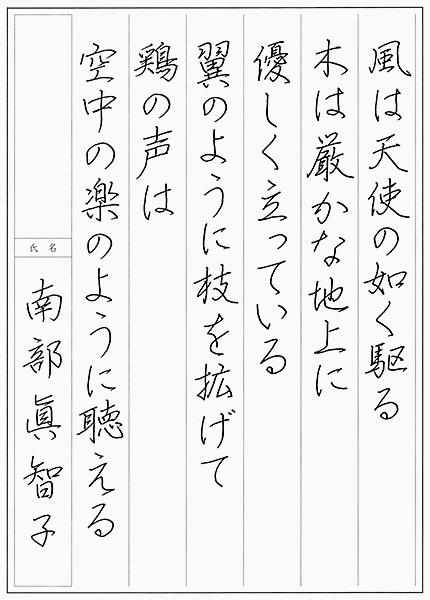 風は天使の如く駆る
木は厳かな地上に
優しく立っている
翼のように枝を拡げて
鶏の声は
空中の楽のように聴える
氏名
南部眞智子